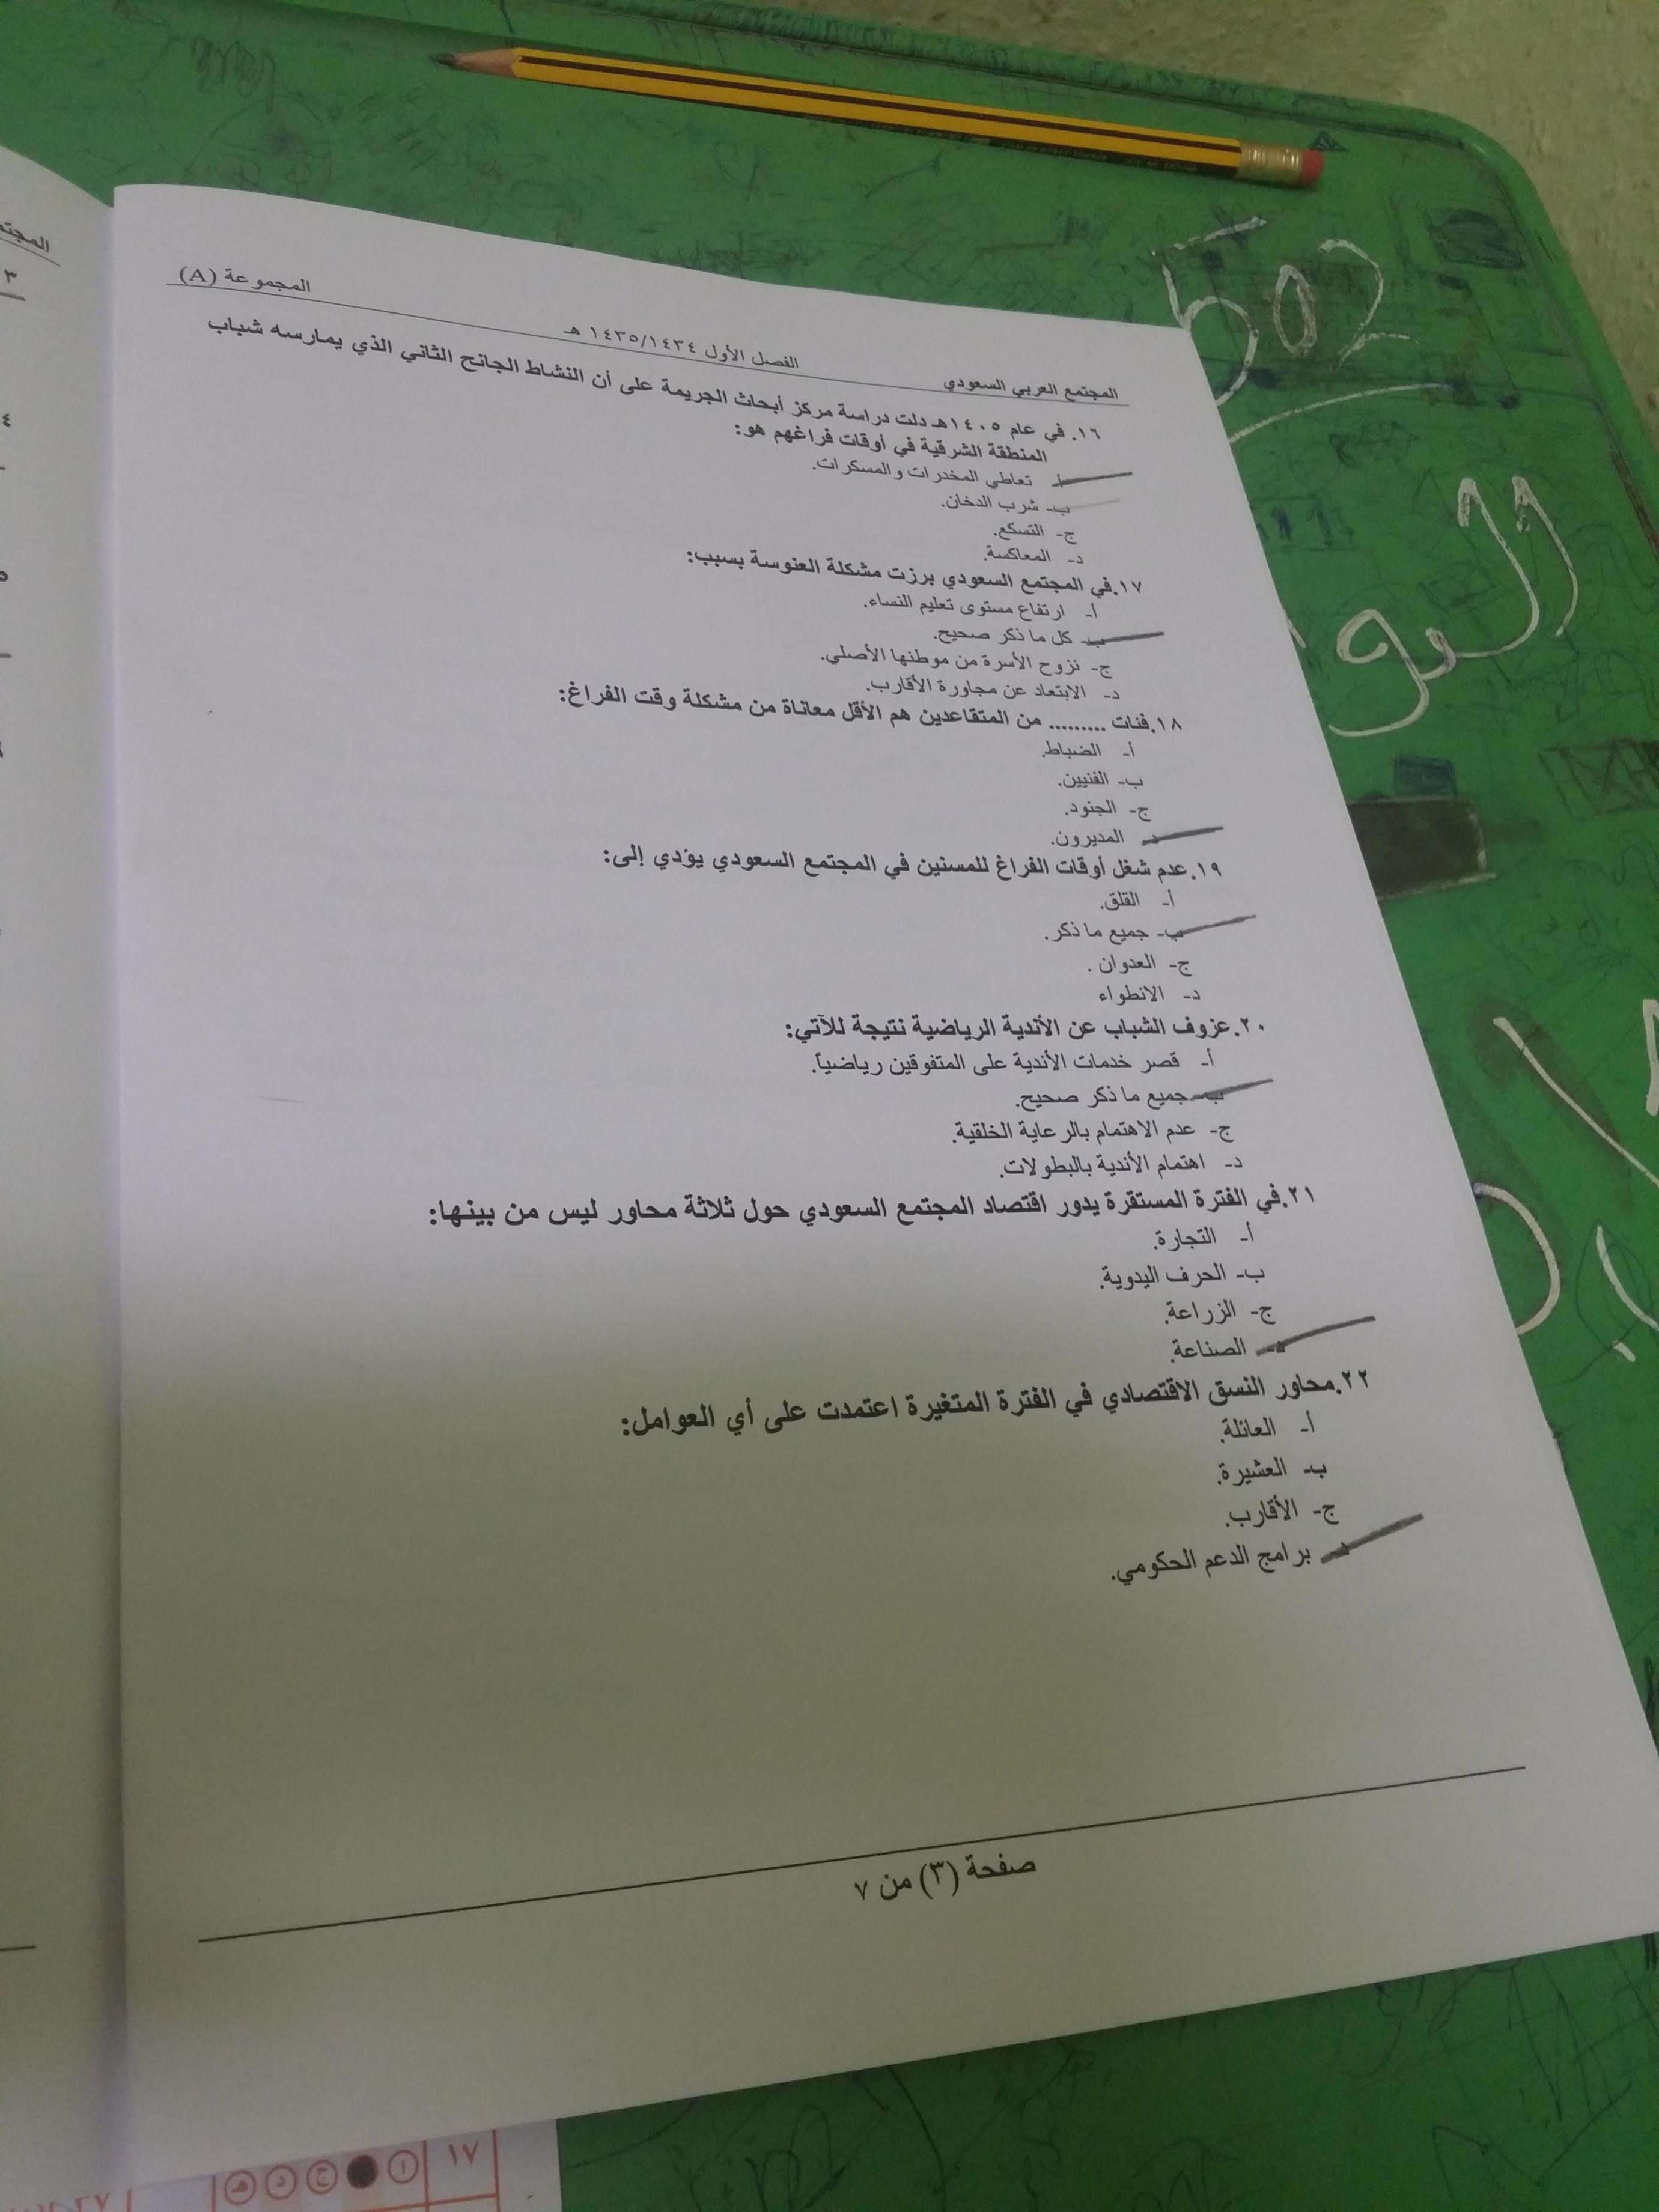 المجتمع العربي السعودي الفصل الأول ١٤٣٥/١٤٣٤ هـ المجموعة (A)
١٦. في عام ١٤٠٥هـ دلت دراسة مركز أبحاث الجريمة على أن النشاط الجانح الثاني الذي يمارسه شباب
المنطقة الشرقية في أوقات فراغهم هو:
أ- تعاطي المخدرات والمسكرات.
ب- شرب الدخان.
ج- التسكع.
د- المعاكسة.
١٧.في المجتمع السعودي برزت مشكلة العنوسة بسبب:
أ- ارتفاع مستوى تعليم النساء.
ب- كل ما ذكر صحيح.
ج- نزوح الأسرة من موطنها الأصلي.
د- الابتعاد عن مجاورة الأقارب.
١٨.فئات ......... من المتقاعدين هم الأقل معاناة من مشكلة وقت الفراغ:
أ- الضباط.
ب- الفنيين.
ج- الجنود.
د- المديرون.
١٩.عدم شغل أوقات الفراغ للمسنين في المجتمع السعودي يؤدي إلى:
أ- القلق.
ب- جميع ما ذكر.
ج- العدوان .
د- الانطواء
٢٠.عزوف الشباب عن الأندية الرياضية نتيجة للآتي:
أ- قصر خدمات الأندية على المتفوقين رياضياً.
ب- جميع ما ذكر صحيح.
ج- عدم الاهتمام بالرعاية الخلقية.
د- اهتمام الأندية بالبطولات.
٢١.في الفترة المستقرة يدور اقتصاد المجتمع السعودي حول ثلاثة محاور ليس من بينها:
أ- التجارة.
ب- الحرف اليدوية.
ج- الزراعة.
د- الصناعة.
٢٢.محاور النسق الاقتصادي في الفترة المتغيرة اعتمدت على أي العوامل:
أ- العائلة.
ب- العشيرة.
ج- الأقارب.
د- برامج الدعم الحكومي.
صفحة (٣) من ٧
١٧ ا ج د هـ
502